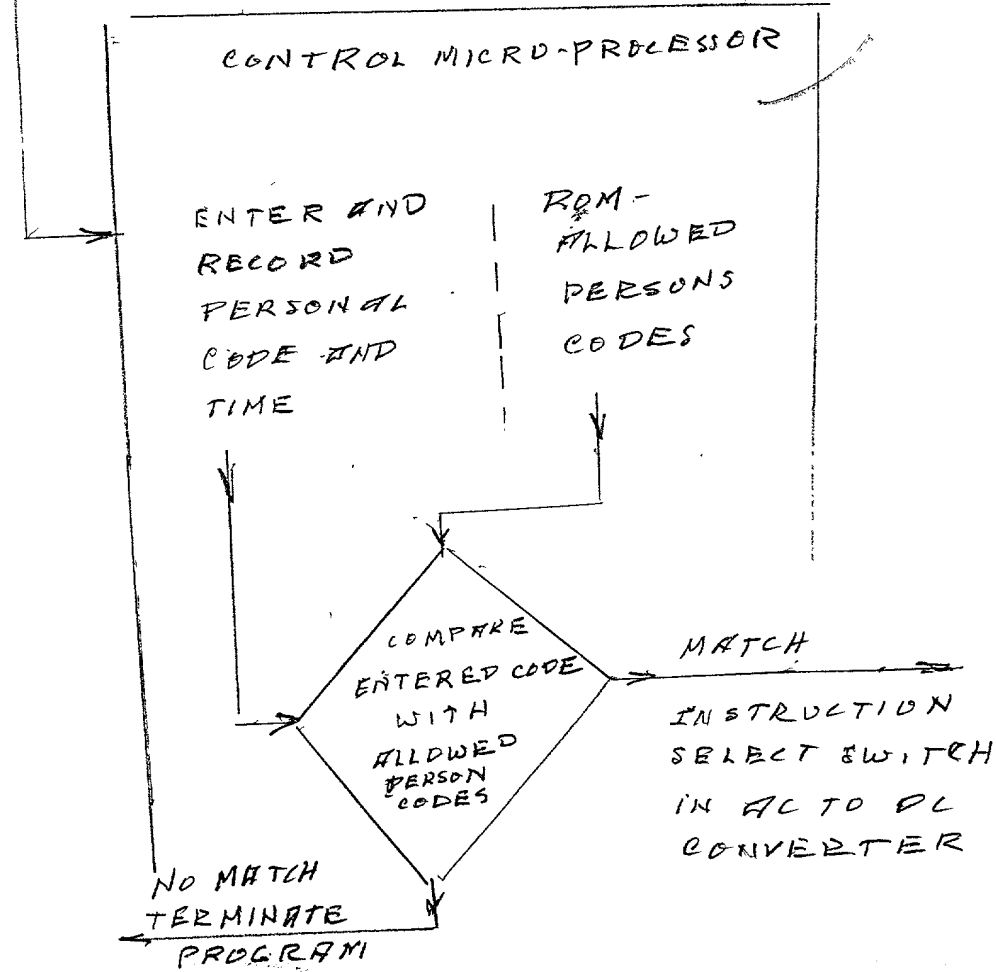 CONTROL MICRO-PROCESSOR
ENTER AND
RECORD
PERSONAL
CODE AND
TIME
ROM-
ALLOWED
PERSONS
CODES
COMPARE
ENTERED CODE
WITH
ALLOWED
PERSON
CODES
MATCH
INSTRUCTION
SELECT SWITCH
IN AC TO DC
CONVERTER
NO MATCH
TERMINATE
PROGRAM